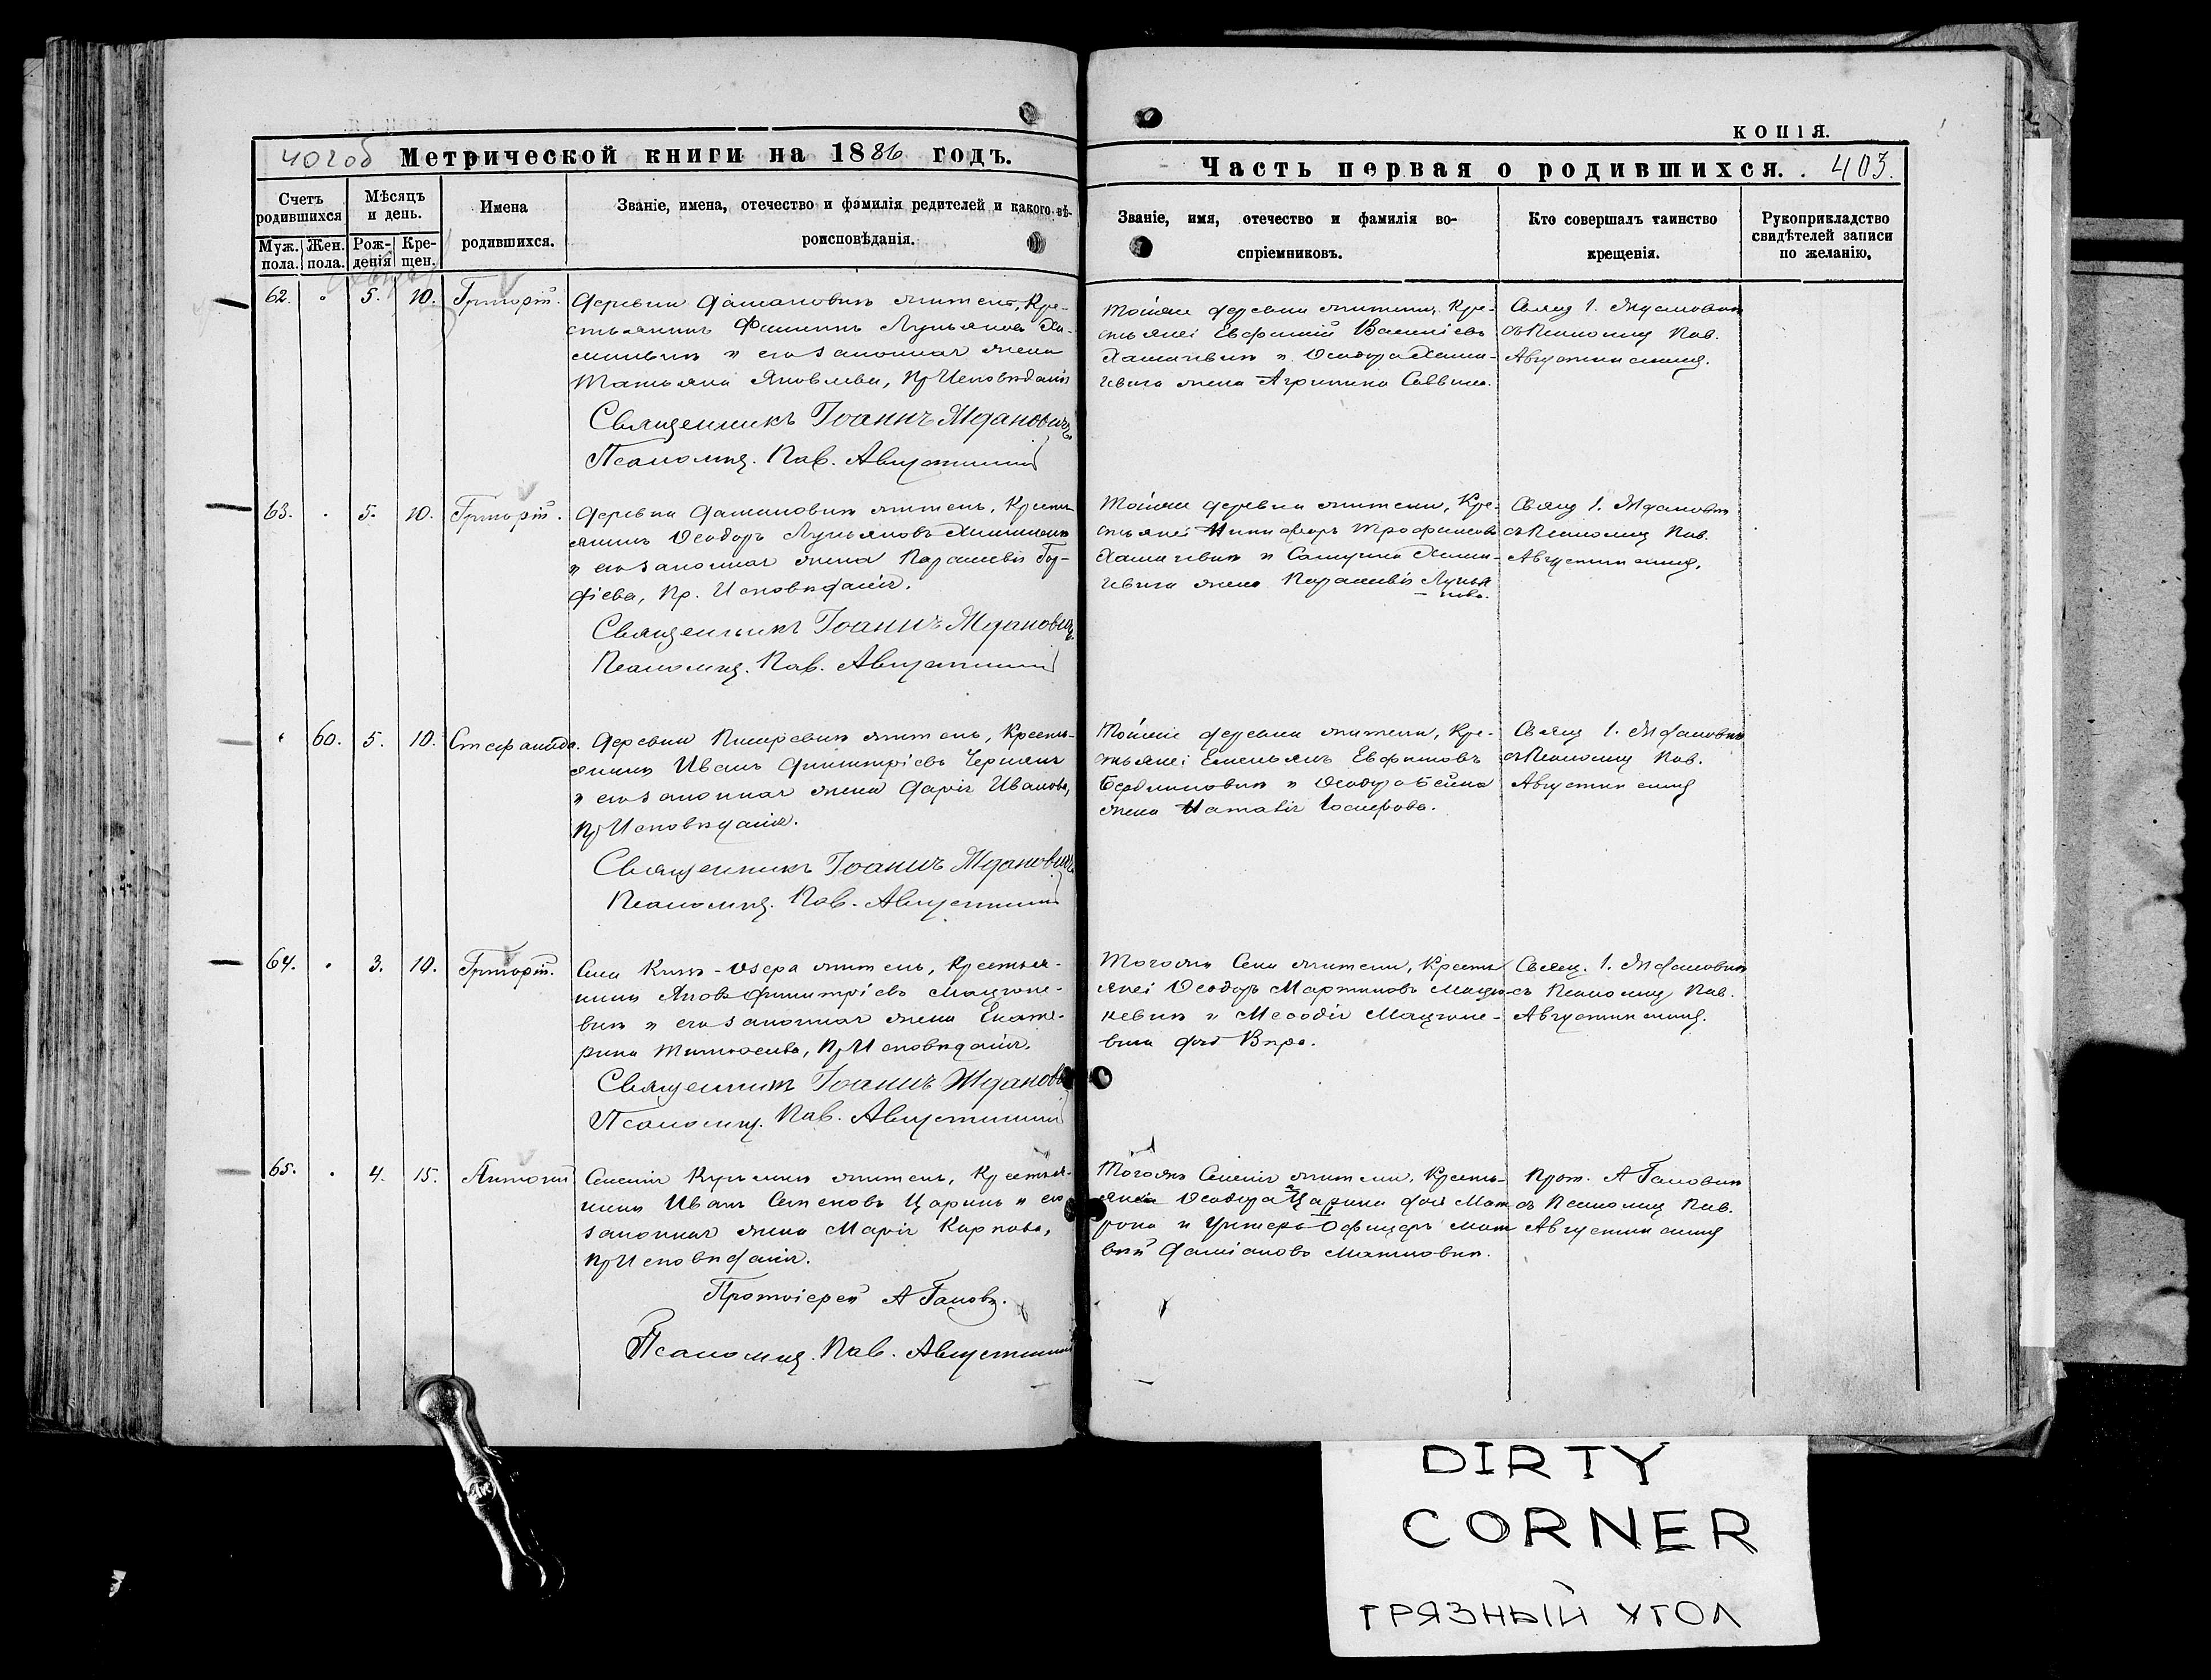 КОПІЯ.
402об Метрической книги на 1886 годъ.
Часть первая о родившихся. 403.
Счетъ родившихся
Мѣсяцъ и день.
Имена родившихся.
Званіе, имена, отечество и фамилія родителей и какого вѣ-
роисповѣданія.
Муж. пола.
Жен. пола.
Рож-
денія
Кре-
щен.
Званіе, имя, отечество и фамилія во-
спріемниковъ.
Кто совершалъ таинство
крещенія.
Рукоприкладство
свидѣтелей записи
по желанію.
62. 5. 10. Григорій.
Деревни житель, Кре-
стьянинъ Филиппъ Лукьяновъ
и его законная жена
Татьяна Яковлева, Пр Исповѣданія
Священникъ Іоаннъ Ждановичъ
Псаломщ. Пав. Августинскій
Тойже деревни жители, Кре-
стьяне: Евфимій Василіевъ
и Ѳеодора
жена Агрипина Саввина.
Свящ. І. Ждановичъ
съ Псаломщ Пав.
Августинскимъ.
63. 5. 10. Григорій.
Деревни житель, Кресть
янинъ Ѳеодоръ Лукьяновъ
и его законная жена Параскевія Гор-
дѣева, Пр. Исповѣданія.
Священникъ Іоаннъ Ждановичъ
Псаломщ. Пав. Августинскій
Тойже деревни жители, Кре-
стьяне: Никифоръ Трофимовъ
и
жена Параскевія Лукья
нова.
Свящ І. Ждановичъ
съ Псаломщ Пав.
Августинскимъ.
60. 5. 10. Стефанида.
Деревни житель, Кресть-
янинъ Иванъ Димитріевъ
и его законная жена Дарія Иванова,
Пр Исповѣданія.
Священникъ Іоаннъ Ждановичъ
Псаломщ. Пав. Августинскій
Тойже деревни жители, Кре-
стьяне: Емельянъ Евфимовъ
и Ѳеодора
жена Наталія Іосифова.
Свящ І. Ждановичъ
съ Псаломщ Пав.
Августинскимъ
64. 3. 10. Григорій.
Села Князь-Озера житель, Крестья-
нинъ Яковъ Димитріевъ Мацуке-
вичъ и его законная жена Екате-
рина Тимоѳеева, Пр Исповѣданія.
Священникъ Іоаннъ Ждановичъ
Псаломщ. Пав. Августинскій
Тогожъ Села жители, Кресть
яне: Ѳеодоръ Мартиновъ Мацу-
кевичъ и Меѳодія Мацуке-
вича дочь Вѣра.
Свящ. І. Ждановичъ
съ Псаломщ Пав.
Августинскимъ.
65. 4. 15. Антоній
Селенія житель, Крестья-
нинъ Иванъ Семеновъ Царикъ и его
законная жена Марія Карпова,
Пр Исповѣданія.
Протоіерей А
Псаломщ. Пав. Августинскій
Тогожъ Селенія жители, Кресть-
яне: Ѳеодора Царика дочь Мат
рона и Унтеръ-Офицеръ Мат
вѣй Даміановъ
Прот. А
съ Псаломщ Пав.
Августинскимъ
DIRTY
CORNER
ГРЯЗНЫЙ УГОЛ